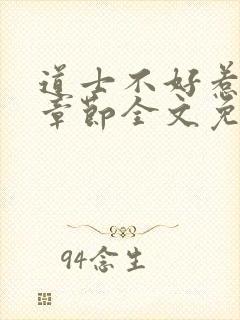 道士不好惹
章节全文免
94念生